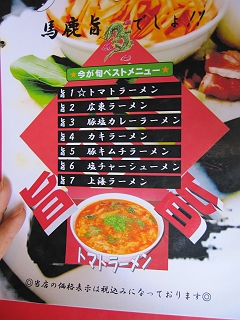 馬鹿旨でしょ!!
☆今が旬ベストメニュー☆
旨1 ☆トマトラーメン
旨2 広東ラーメン
旨3 豚塩カレーラーメン
旨4 カキラーメン
旨5 豚キムチラーメン
旨6 塩チャーシューメン
旨7 上海ラーメン
トマトラーメン
◎当店の価格表示は税込みになっております◎